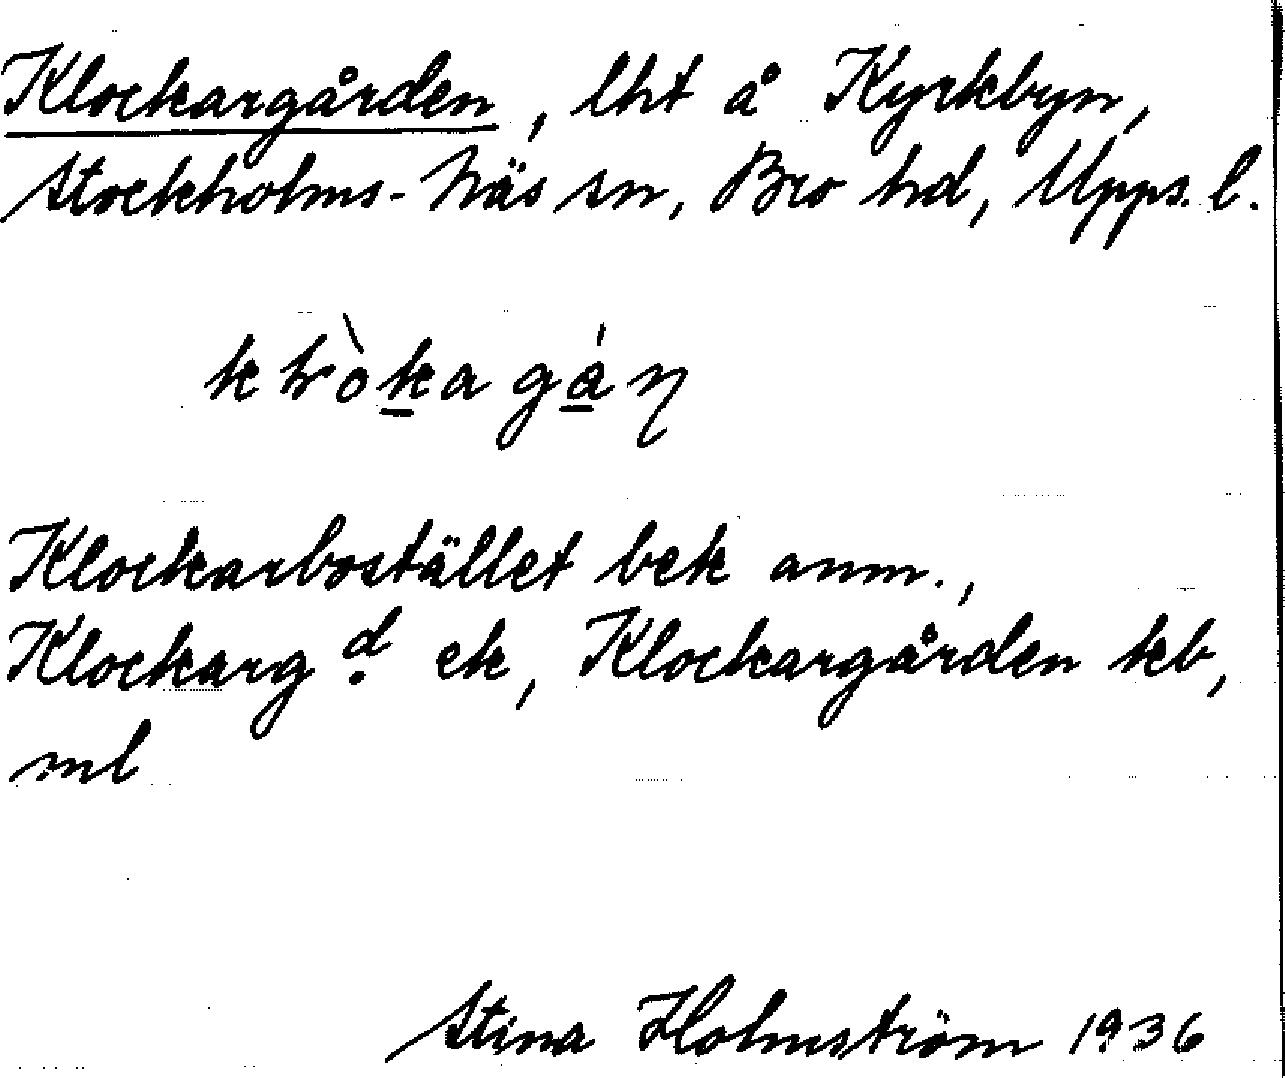 Klockargården, lht å Kyrkbyn,
Stockholms-Näs sn, Bro hd, Upps. l.
Klockarbostället bek anm.,
Klockarg d. ek, Klockargården kb,
ml
Stina Holmström 1936